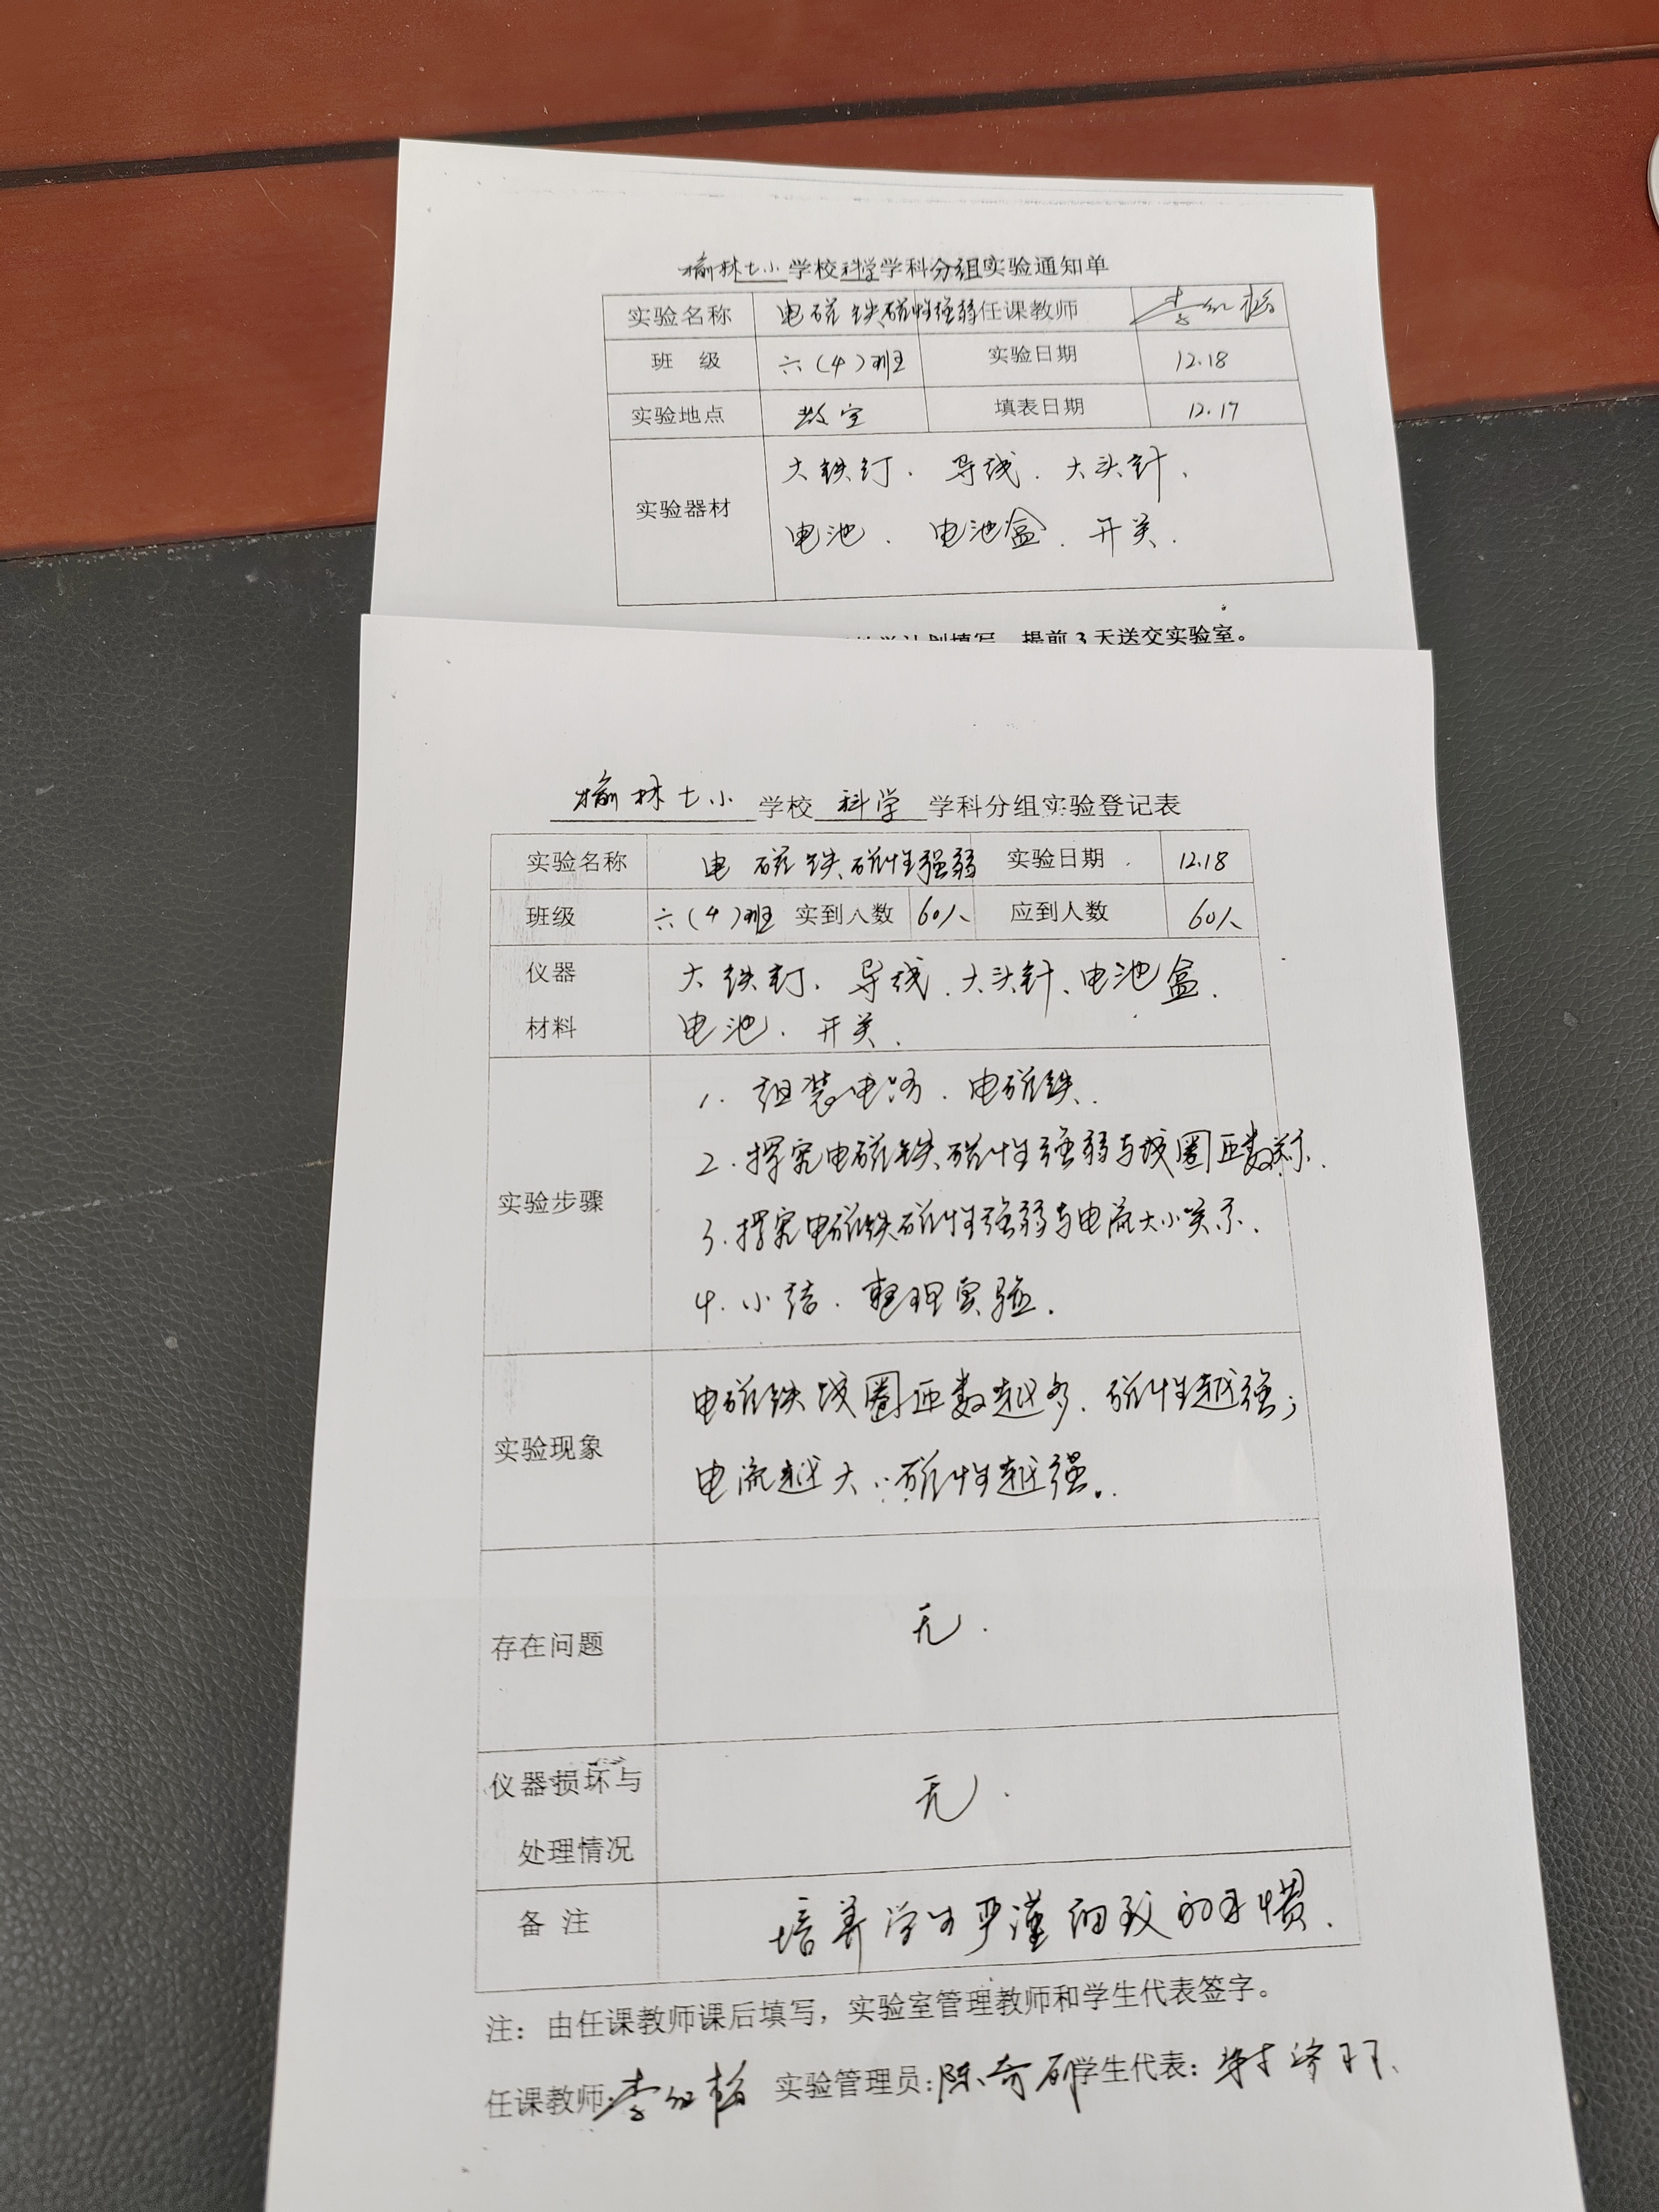 榆林七小学校科学学科分组实验通知单
实验名称 电磁铁磁性强弱 任课教师 李红梅
班 级 六（4）班 实验日期 12.18
实验地点 教室 填表日期 12.17
实验器材 大铁钉、导线、大头针、
电池、电池盒、开关.
计划填写，提前3天送交实验室。
榆林七小 学校 科学 学科分组实验登记表
实验名称 电磁铁磁性强弱 实验日期 12.18
班级 六（4）班 实到人数 60人 应到人数 60人
仪器 大铁钉、导线、大头针、电池盒、
材料 电池、开关.
1. 组装电路、电磁铁.
2. 探究电磁铁磁性强弱与线圈匝数关系.
实验步骤
3. 探究电磁铁磁性强弱与电流大小关系.
4. 小结、整理实验.
电磁铁线圈匝数越多、磁性越强；
实验现象
电流越大、磁性越强.
存在问题 无.
仪器损坏与 无.
处理情况
备 注 培养学生严谨细致的习惯.
注：由任课教师课后填写，实验室管理教师和学生代表签字。
任课教师：李红梅 实验管理员：陈奇 学生代表：